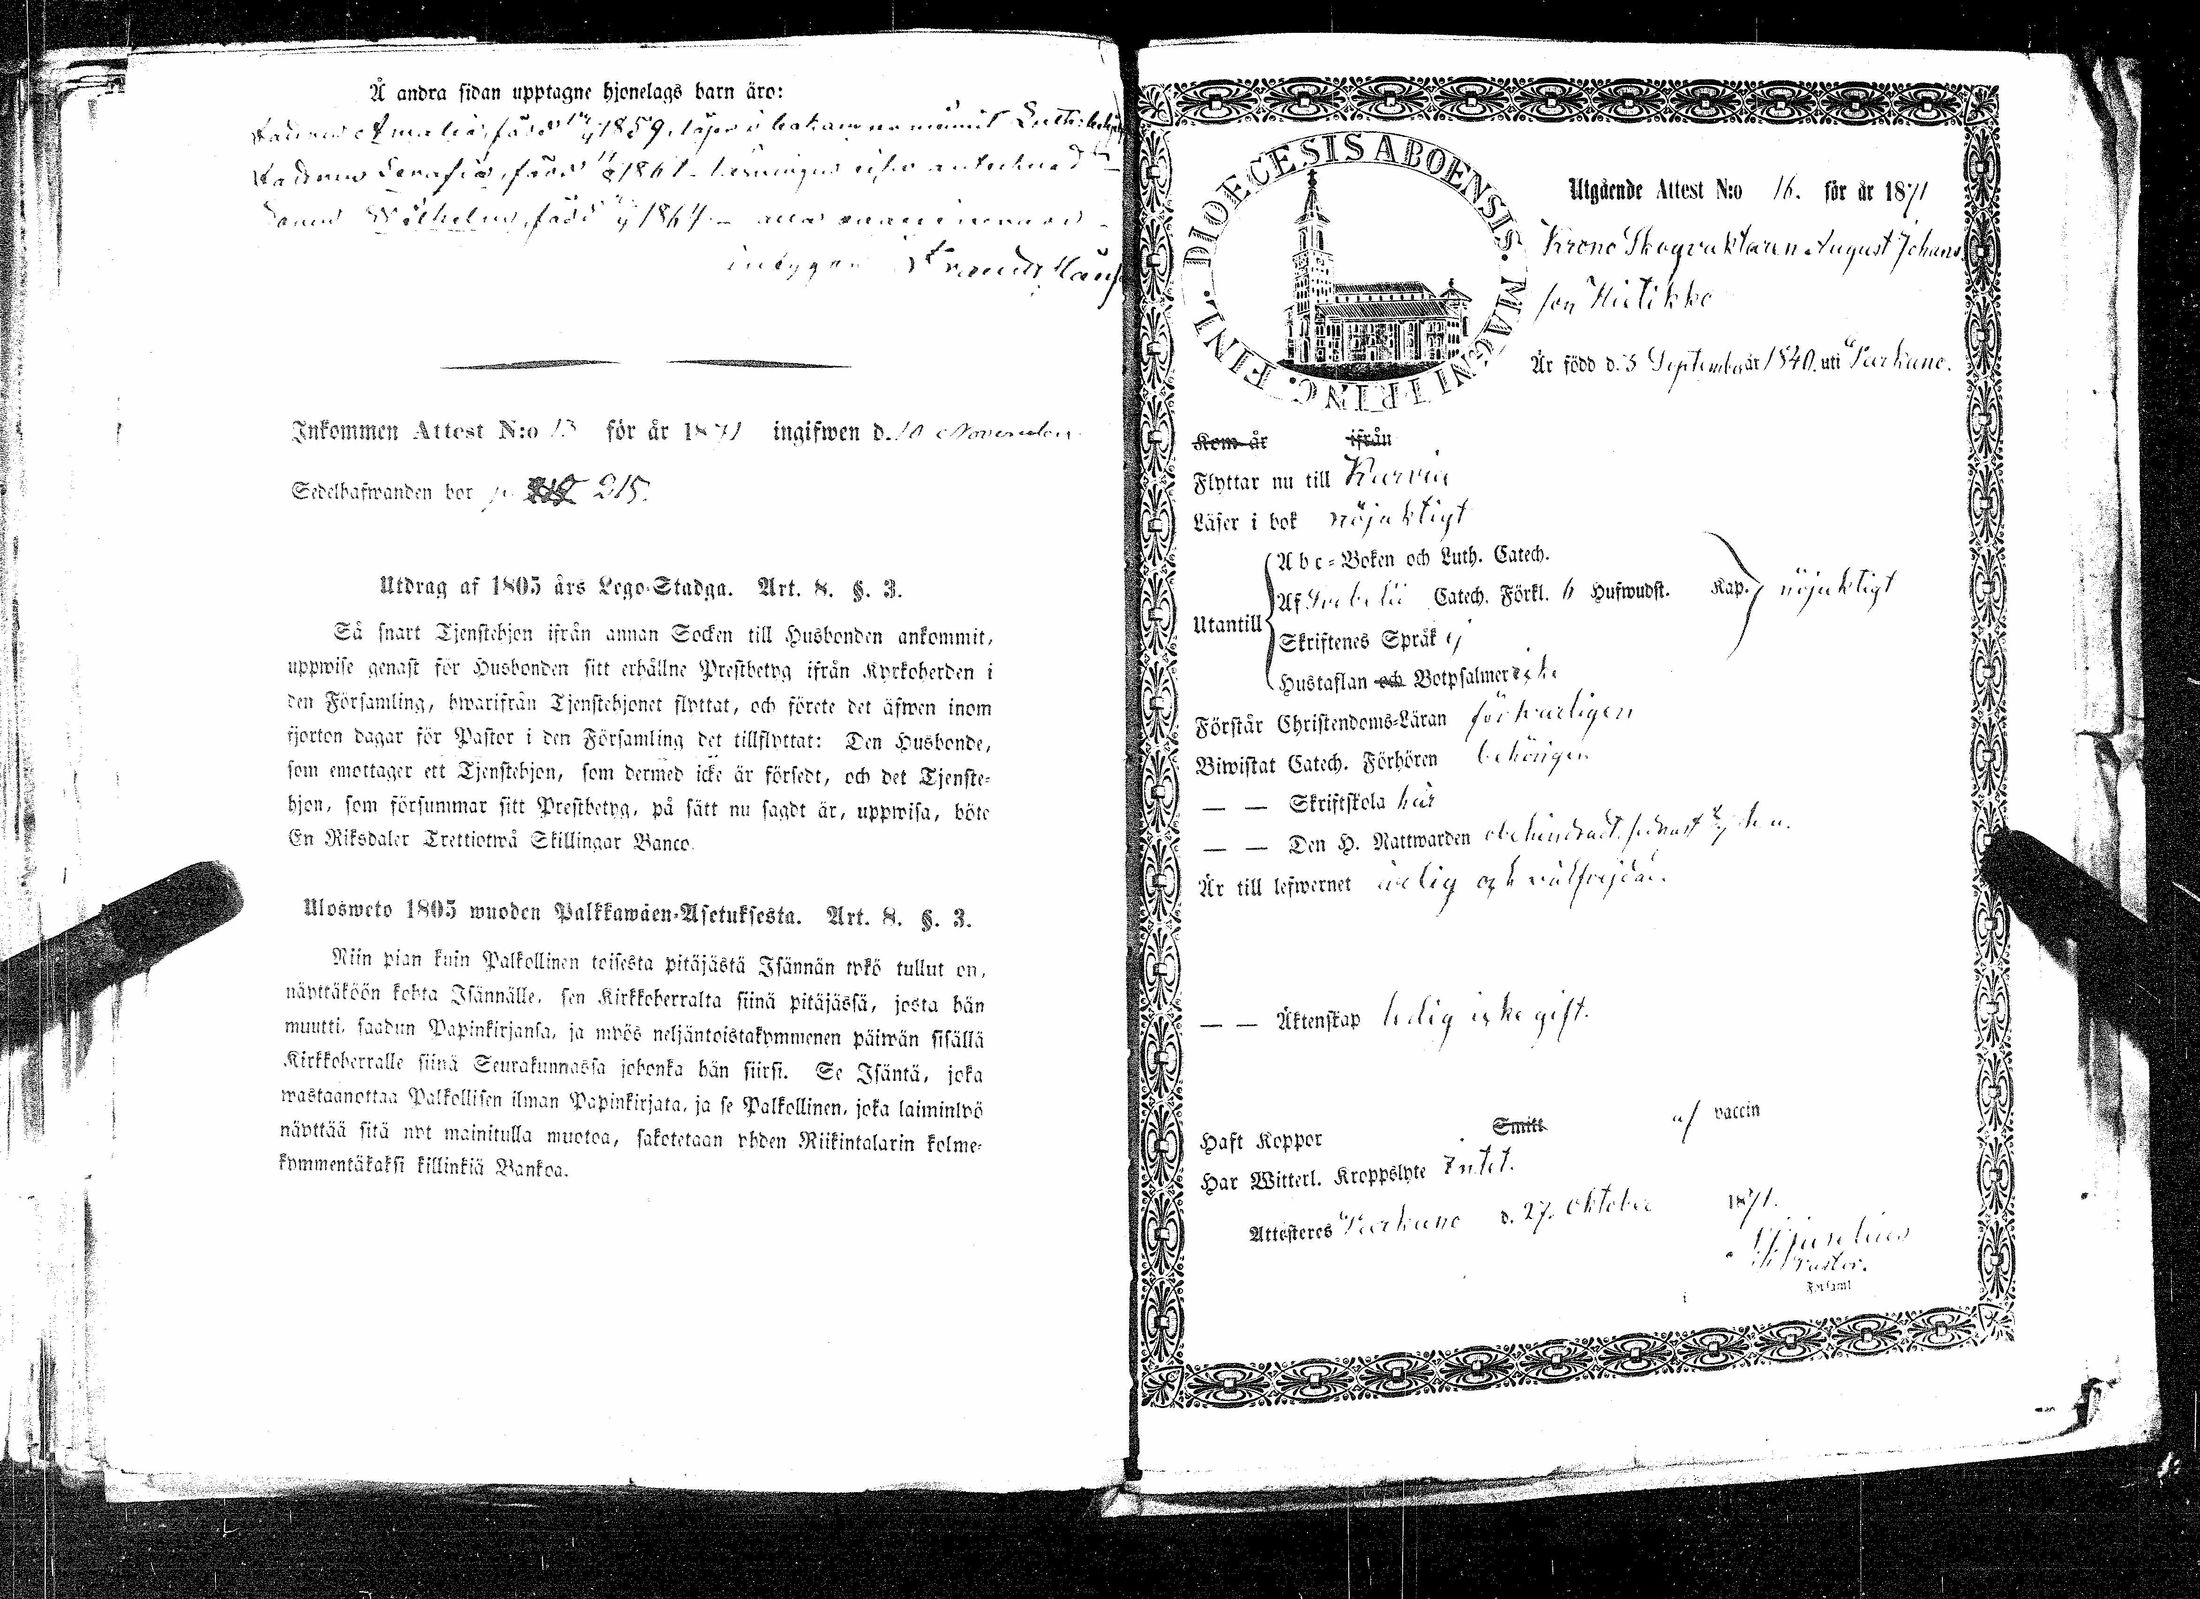 Å andra sidan upptagne hjonelags barn äro:
Amalia, född 1859, i
Serafia, född 1861
Wilhelm, född 1864 — alla
intygar
Inkommen Attest N:o 13 för år 1871 ingifwen d. 10 November
Sedelhafwanden bor p. 215.
Utdrag af 1805 års Lego-Stadga. Art. 8. §. 3.
Så snart Tjenstehjon ifrån annan Socken till Husbonden ankommit,
uppwise genast för Husbonden sitt erhållne Prestbetyg ifrån Kyrkoherden i
den Församling, hwarifrån Tjenstehjonet flyttat, och förete det äfwen inom
fjorton dagar för Pastor i den Församling det tillflyttat: Den Husbonde,
som emottager ett Tjenstehjon, som dermed icke är försedt, och det Tjenste-
hjon, som försummar sitt Prestbetyg, på sätt nu sagdt är, uppwisa, böte
En Riksdaler Trettiotwå Skillingar Banco.
Ulosweto 1805 wuoden Palkkawäen-Asetuksesta. Art. 8. §. 3.
Niin pian kuin Palkollinen toisesta pitäjästä Isännän tykö tullut on,
näyttäköön kohta Isännälle, sen Kirkkoherralta siinä pitäjässä, josta hän
muutti, saadun Papinkirjansa, ja myös neljäntoistakymmenen päiwän sisällä
Kirkkoherralle siinä Seurakunnassa johonka hän siirsi. Se Isäntä, joka
wastaanottaa Palkollisen ilman Papinkirjata, ja se Palkollinen, joka laiminlyö
näyttää sitä nyt mainitulla muotoa, sakotetaan yhden Riikintalarin kolme-
kymmentäkaksi killinkiä Bankoa.
DIOECESIS ABOENSIS. MAGNI PRINC. FINL.
Utgående Attest N:o 16. för år 1871
Krono Skogvaktaren August Johans
son
Är född d. 3 September år 1840. uti Parkano.
Kom år ifrån
Flyttar nu till Karvia
Läser i bok nöjaktigt
Utantill
Abc-Boken och Luth. Catech.
Af Catech. Förkl. 6 Hufwudst. Kap. nöjaktigt
Skriftenes Språk ej
Hustaflan och Botpsalmer icke
Förstår Christendoms-Läran försvarligen
Biwistat Catech. Förhören behörigen
— — Skriftskola här
— — Den H. Nattwarden obehindradt, senast d. å.
Är till lefwernet ärlig och välfrejdad.
— — Äktenskap ledig icke gift.
Haft Koppor Smitt af vaccin
Har Witterl. Kroppslyte Intet.
Attesteres Parkano d. 27. Oktober 1871.
Pastor.
Församl